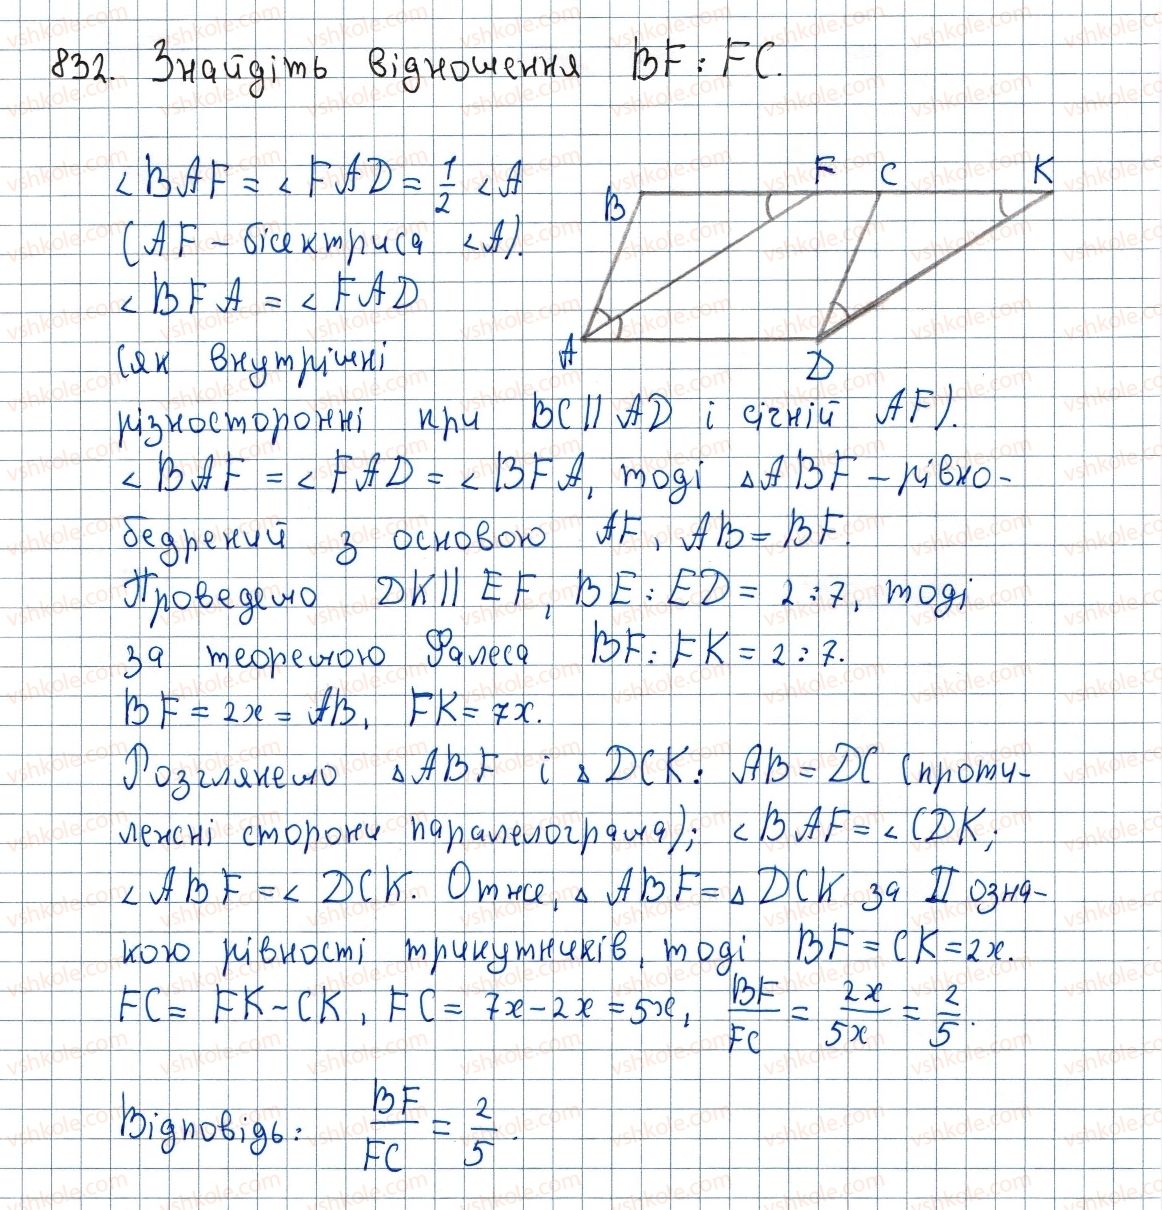 832. Знайдіть відношення BF : FC.
F C K
∠BAF = ∠FAD = 1/2 ∠A
B
(AF – бісектриса ∠A).
∠BFA = ∠FAD
(як внутрішні
A
D
різносторонні при BC || AD і січній AF).
∠BAF = ∠FAD = ∠BFA, тоді △ABF – рівно-
бедрений з основою AF, AB = BF.
Проведемо DK || EF, BE : ED = 2 : 7, тоді
за теоремою Фалеса BF : FK = 2 : 7.
BF = 2x = AB, FK = 7x.
Розглянемо △ABF і △DCK: AB = DC (проти-
лежні сторони паралелограма); ∠BAF = ∠CDK;
∠ABF = ∠DCK. Отже, △ABF = △DCK за II озна-
кою рівності трикутників, тоді BF = CK = 2x.
FC = FK – CK, FC = 7x – 2x = 5x, BF/FC = 2x/5x = 2/5.
Відповідь: BF/FC = 2/5.